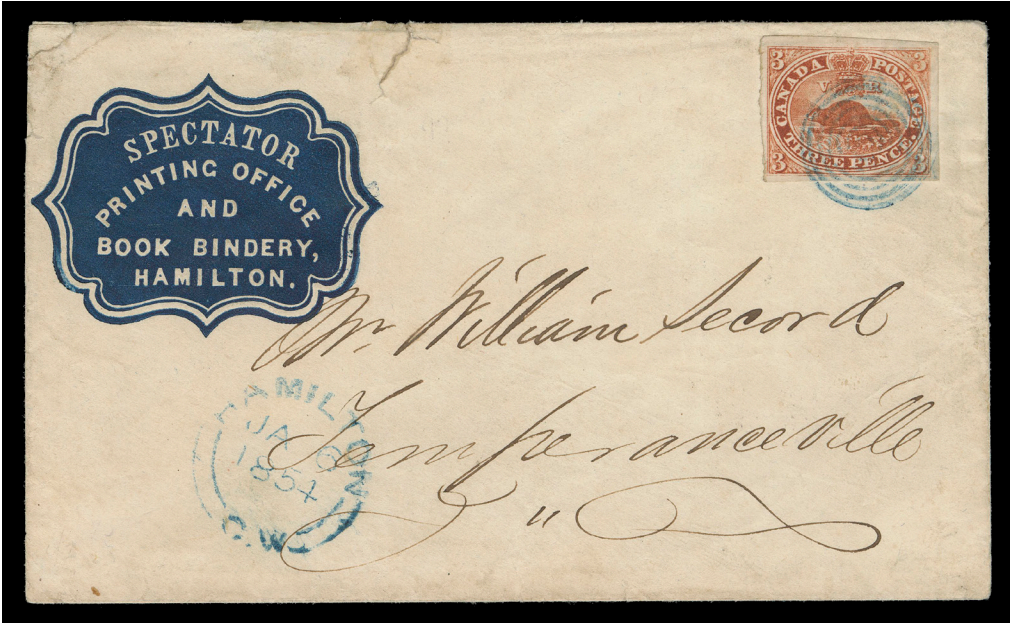 SPECTATOR
PRINTING OFFICE
AND
BOOK BINDERY,
HAMILTON.
3 3
CANADA POSTAGE.
V R
THREE PENCE.
3 3
Mr. William Secord
Temperanceville
"
HAMILTON
JA 6
1854
C.W.